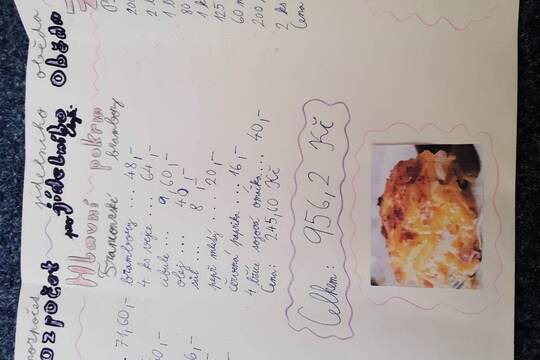 rozpočet jídelníčko oběda
ozpočet pro jídelníčko Oběda
Hlavní pokrm
brambory
brambory ... 48,-
4 ks vejce .... 64,-
cibule ... 9,60,-
olej .... 40,-
sůl .... 8,-
pepř mletý ... 20,-
červená paprika ... 16,-
4 lžíce sojová omáčka... 40,-
Cena: 245,60 Kč
Celkem: 956,2 Kč
71,60,-
80
125
60 m
200
2 ks
Cena